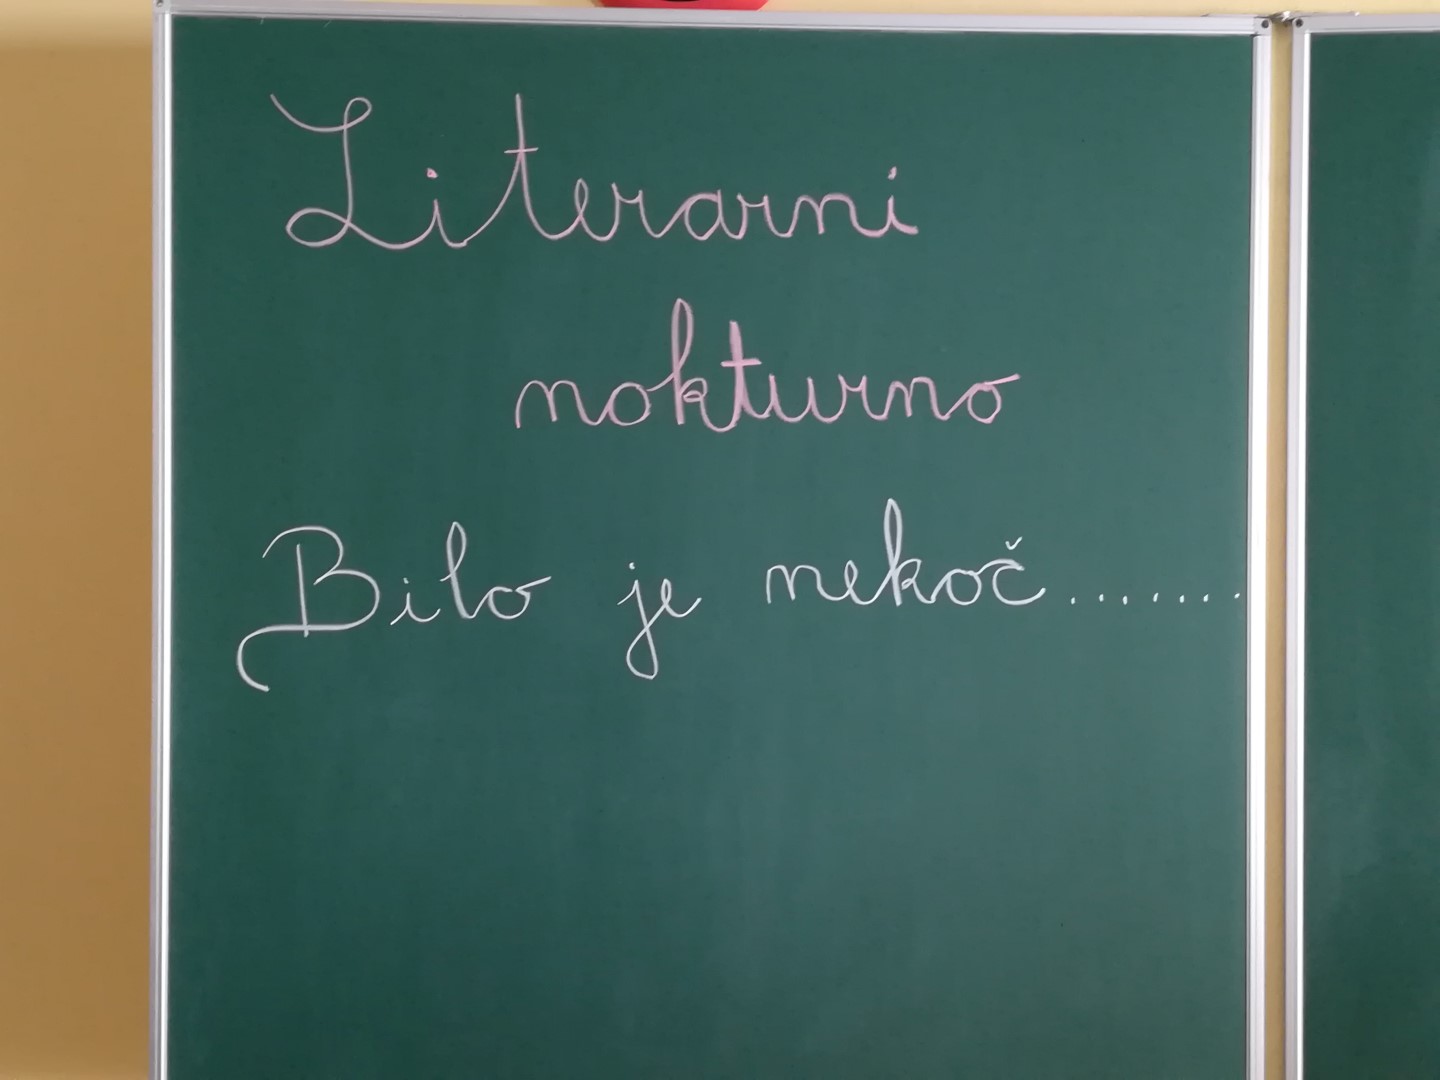 Literarni
nokturno
Bilo je nekoč.......